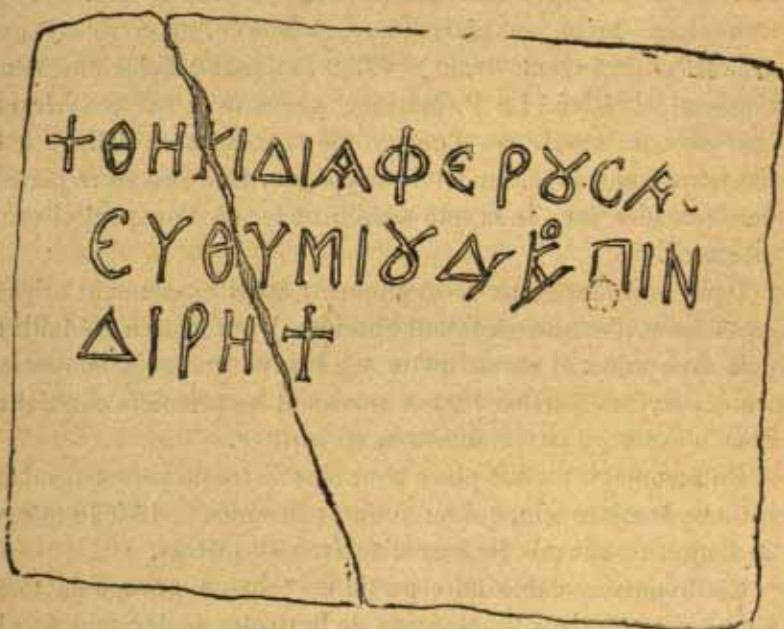 +ΘΗΚΙΔΙΑΦΕΡȣϹΑ
ΕΥΘΥΜΙȣ Δ Κο ΠΙΝ
ΔΙΡΗ+